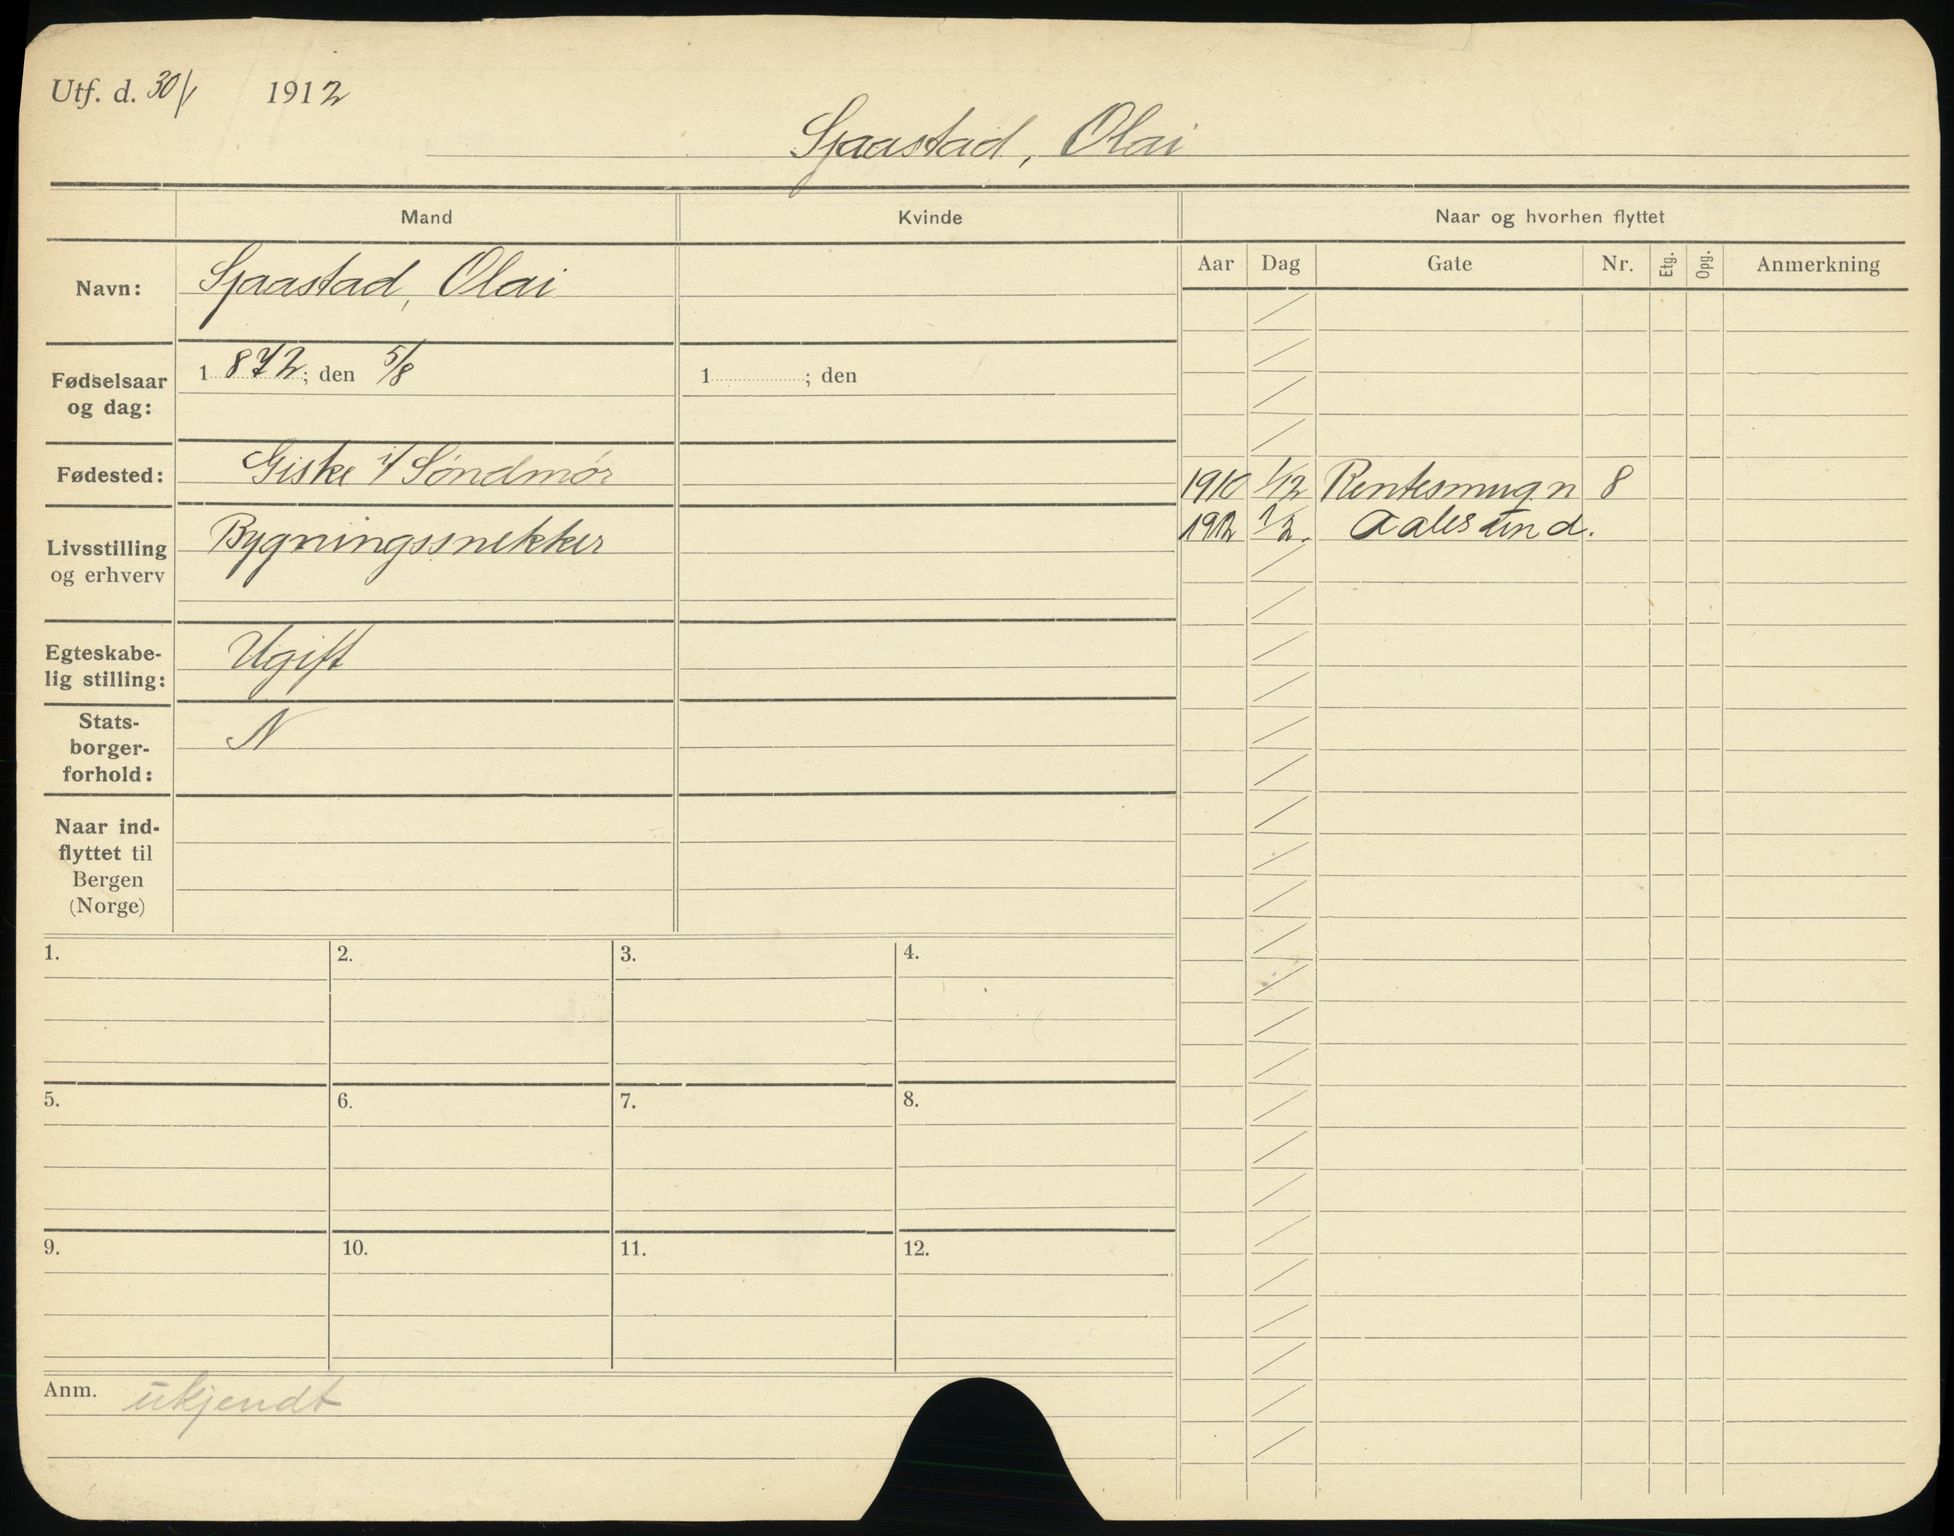 Utf. d. 30/1 1912
Sjaastad, Olai
Mand
Kvinde
Naar og hvorhen flyttet
Navn: Sjaastad, Olai
Aar Dag Gate Nr. Etg. Opg. Anmerkning
Fødselsaar og dag: 1872; den 5/8
1 ; den
Fødested: Giske i/ Søndmør
1910 1/12 Rentesmugn 8
1912 1/2. Aalesund.
Livsstilling og erhverv Bygningssnekker
Egteskabe-
lig stilling: Ugift
Stats-
borger-
forhold: N
Naar ind-
flyttet til
Bergen
(Norge)
1. 2. 3. 4.
5. 6. 7. 8.
9. 10. 11. 12.
Anm. ukjendt